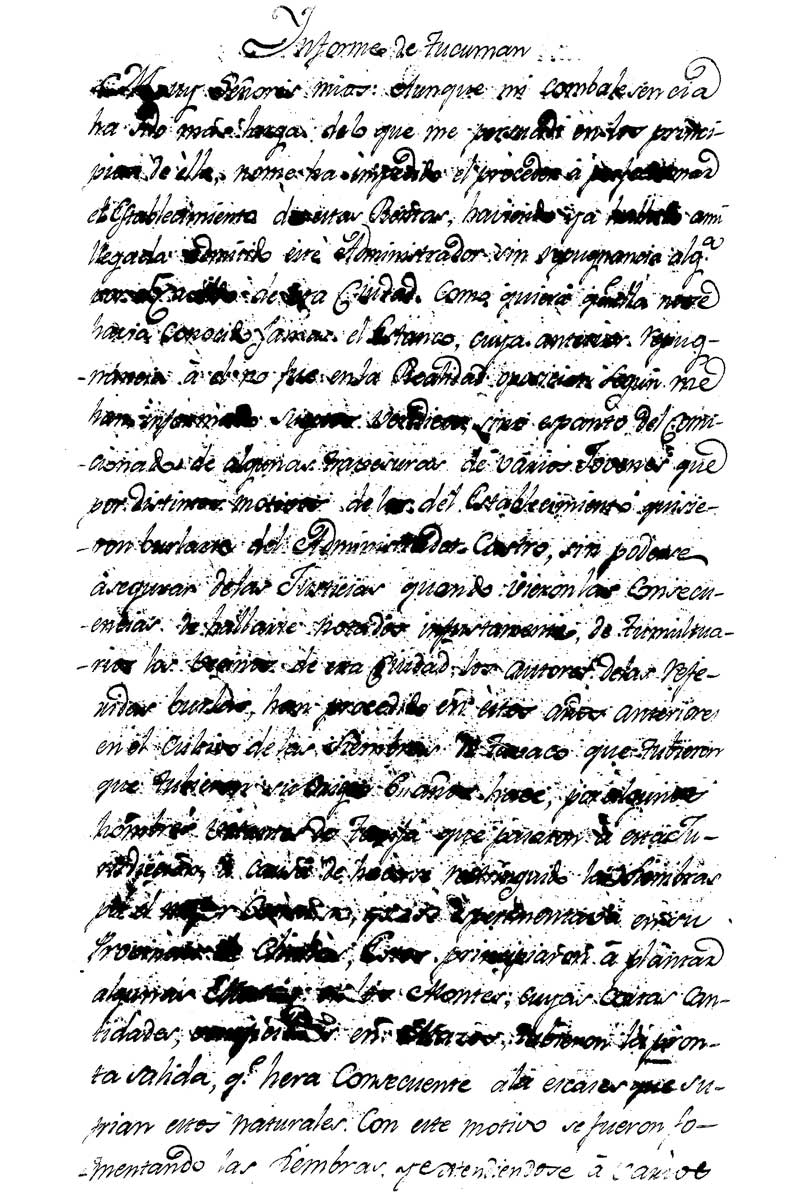 Informe de Tucuman
Muy Señores mios: Aunque mi combalesencia
ha sido mas larga de lo que me persuadi en los princi-
pios de ella, no me ha impedido el proceder á perfeccionar
el Establecimiento de estas Rentas, haviendo ya á mi
llegada admitido este Administrador sin repugnancia alg.ª
de esta Ciudad. Como quiera
havia conocido jamas el Estanco, cuya anterior repug-
-nancia á el no fue en la Realidad oposicion segun me
han informado sugetos veridicos, sino espanto del Comi-
-cionado de algunas travesuras de varios Jovenes que
por distintos motivos de los del Establecimiento quisie-
-ron burlarse del Administrador Castro, sin poderse
asegurar de las Justicias quando vieron las Consecu-
-encias de hallarse notados injustamente, de tumultua-
-rios los vecinos de esa Ciudad los autores de las refe-
ridas burlas, han procedido en estos años anteriores
en el Cultivo de las siembras de tavaco que tubieron
que tubieron su origen 6 años hace, por algunos
hombres de que pasaron á esta Ju-
risdiccion, á causa de haverse restringido las siembras
por el en su
Provincia de principiaron á plantar
algunas en los Montes, cuyas cortas can-
tidades, en tubieron la pron-
ta salida, q.e hera Consecuente á la escases que su-
frian estos naturales. Con este motivo se fueron fo-
-mentando las siembras, y estendiendose á varios